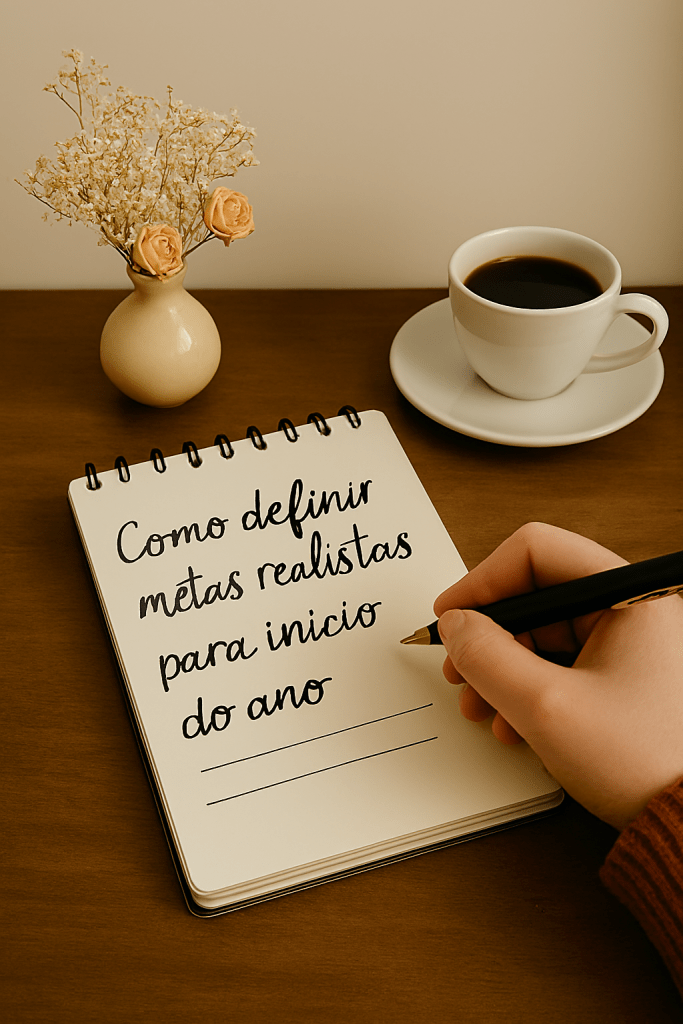 Como definir
metas realistas
para inicio
do ano